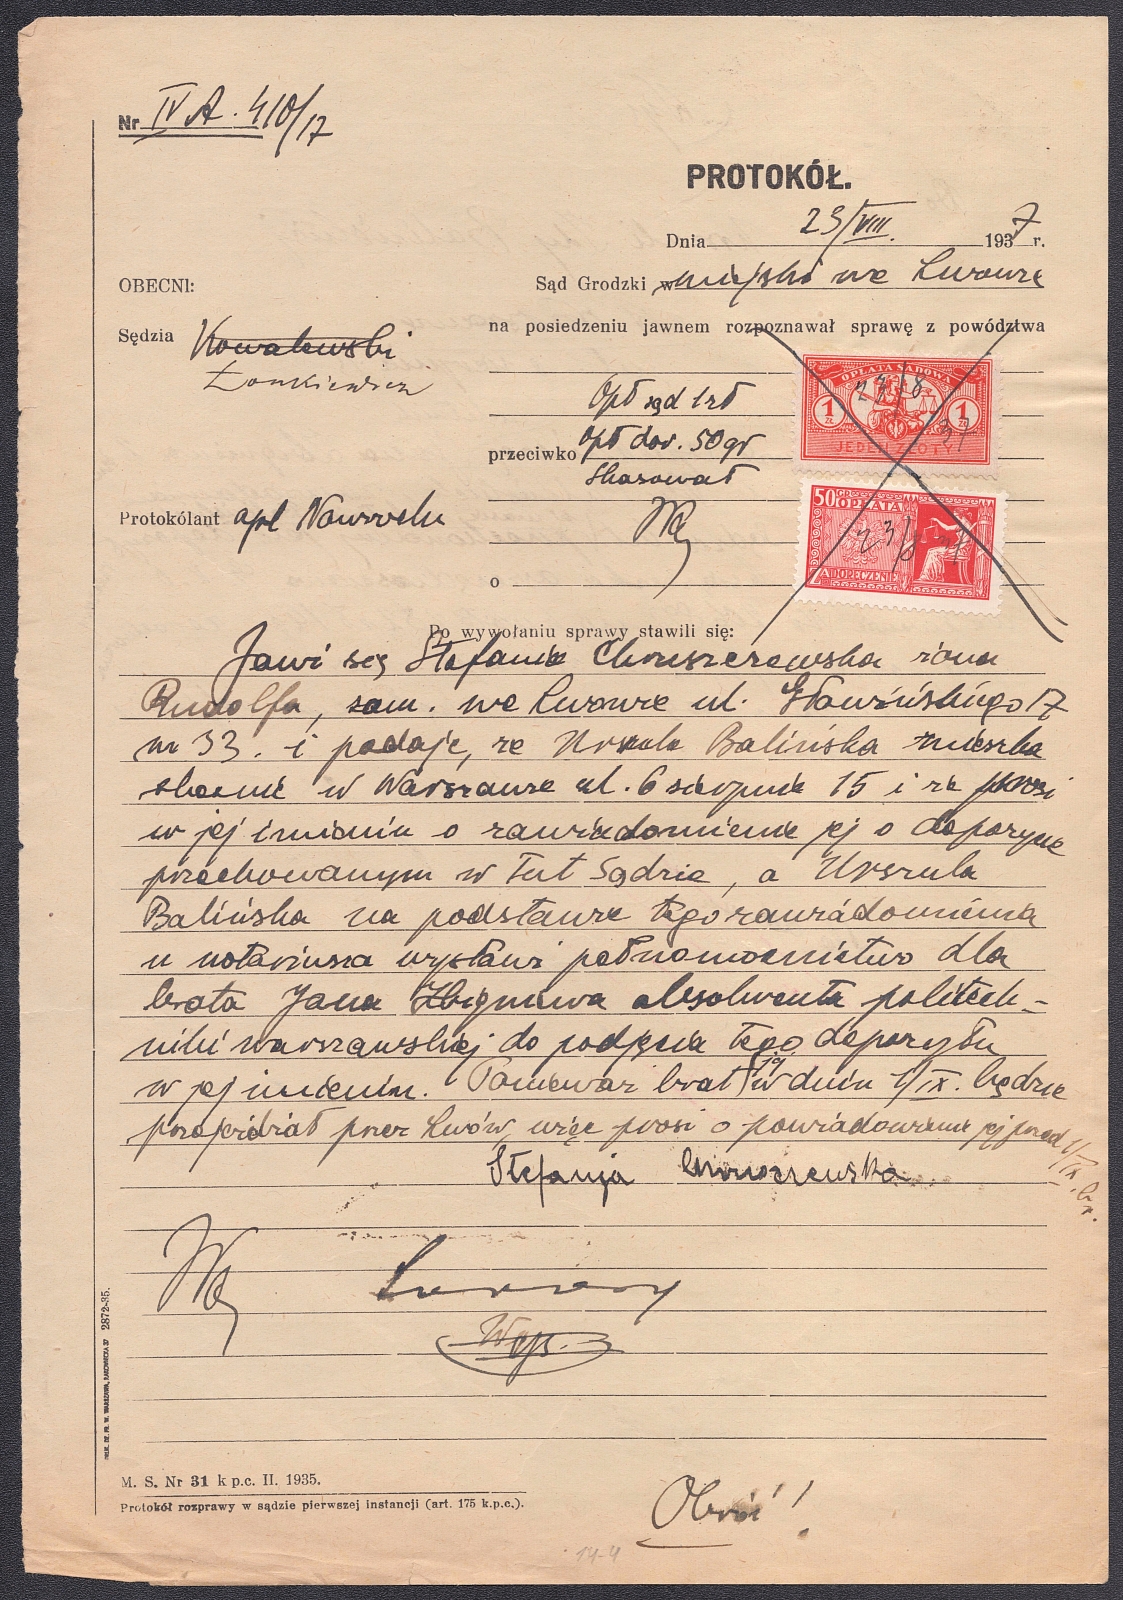 Nr IV A. 410/17
PROTOKÓŁ.
Dnia 23/VIII. 1937 r.
OBECNI:
Sąd Grodzki w miejski we Lwowie
Sędzia Kowalewski
na posiedzeniu jawnem rozpoznawał sprawę z powództwa
Łomkiewicz
OPŁATA SĄDOWA
23/8 37
1 ZŁ 1 ZŁ
JEDEN ZŁOTY
Opł sąd 1 zł
przeciwko Opł dor. 50 gr
Skasował
50 GR OPŁATA
23/8 37
ZA DORĘCZENIE
Protokólant apl Nawrocki
o
Po wywołaniu sprawy stawili się:
Jawi się Stefania Chruszczewska żona
Rudolfa, zam. we Lwowie ul. 17
m 33. i podaje, że Urszula Balińska mieszka
obecnie w Warszawie ul. 6 sierpnia 15 i że prosi
w jej imieniu o zawiadomienie jej o depozycie
przechowanym w Tut Sądzie, a Urszula
Balińska na podstawie tego zawiadomienia
u notariusza wystawi pełnomocnictwo dla
brata Jana Zbigniewa absolwenta politech-
niki warszawskiej do podjęcia tego depozytu
w jej imieniu. Ponieważ brat jej w dniu 1/IX. będzie
przejeżdżał przez Lwów, więc prosi o powiadomienie jej przed 1/IX. b.r.
Stefanja Chruszczewska
M. S. Nr 31 k p.c. II. 1935.
Protokół rozprawy w sądzie pierwszej instancji (art. 175 k.p.c.).
2872-35.
Obróć!
14-4